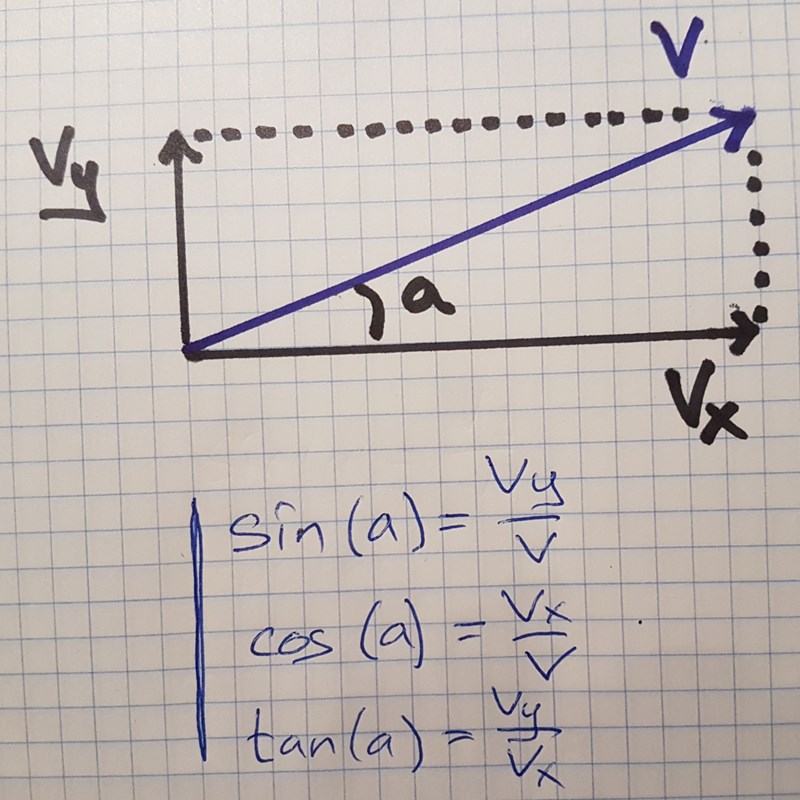 V
Vy
a
Vx
sin(a) = Vy/V
cos(a) = Vx/V
tan(a) = Vy/Vx